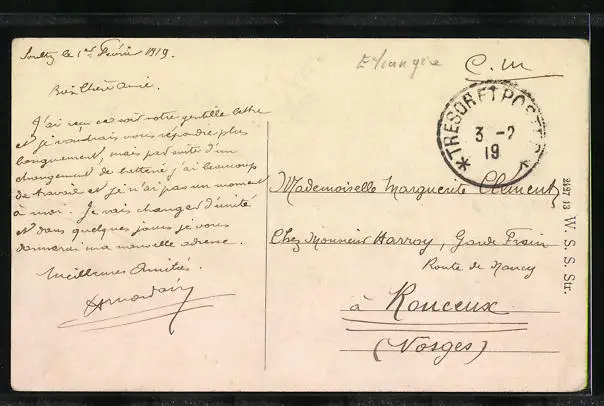 Soultz le 1er Février 1919.
Bien Chère Amie.
J'ai reçu ce soir votre gentille lettre
et je voudrais vous répondre plus
longuement, mais par suite d'un
changement de batterie j'ai beaucoup
de travail et je n'ai pas un moment
à moi. Je vais changer d'unité
et dans quelques jours je vous
donnerai ma nouvelle adresse.
Meilleures Amitiés.
Etrangère
C.M
TRESOR ET POSTES
3-2
19
Mademoiselle Marguerite Clement
Chez Monsieur Harroy, Garde Frein
Route de Nancy
à Rouceux
(Vosges)
2197 13 W. S. S. Str.